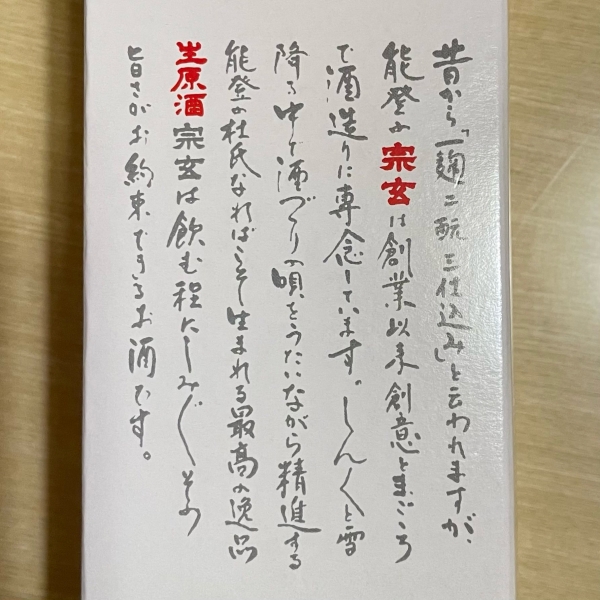 昔から「一麹、二酛、三仕込み」と云われますが、
能登の宗玄は創業以来創意とまごころ
で酒造りに専念しています。しんしんと雪
降る中で酒づくりの唄をうたいながら精進する
能登の杜氏なればこそ生まれる最高の逸品
生原酒宗玄は飲む程にしみじみその
旨さがお約束できるお酒です。